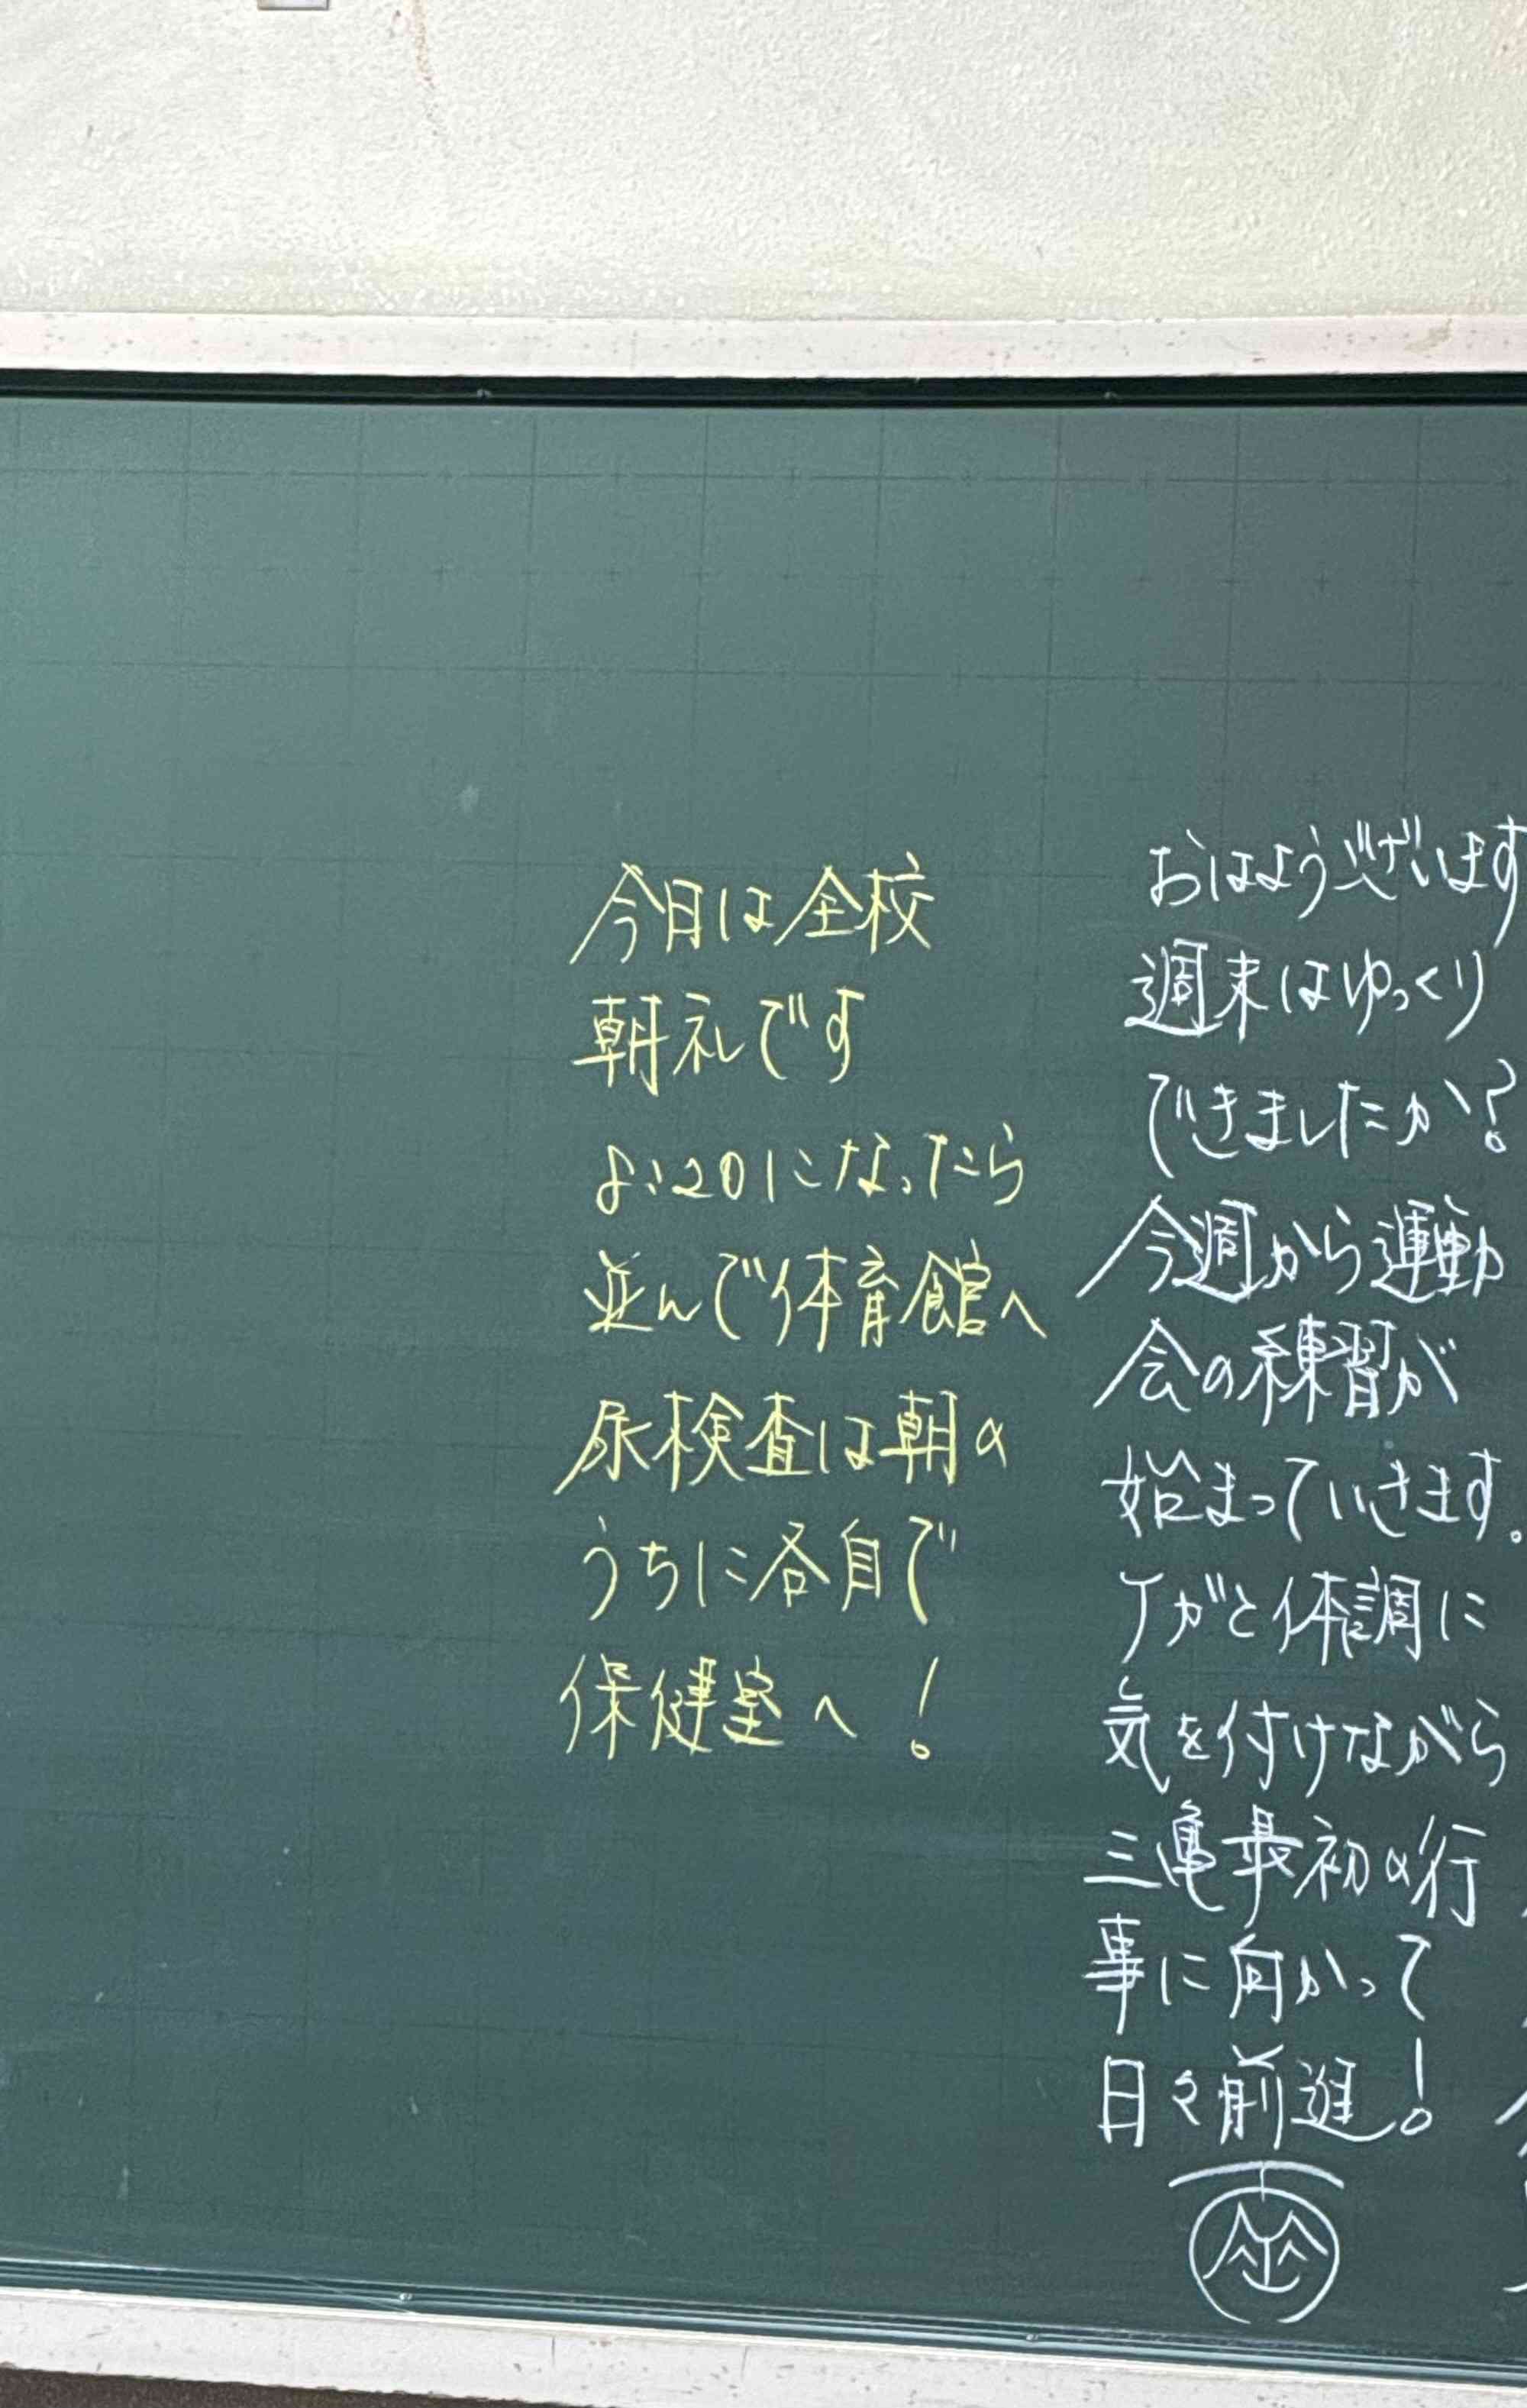 おはようございます
週末はゆっくり
できましたか?
今週から運動
会の練習が
始まっていきます。
ケガと体調に
気を付けながら
三亀最初の行
事に向かって
日々前進!
今日は全校
朝礼です
8:20になったら
並んで体育館へ
尿検査は朝の
うちに各自で
保健室へ!